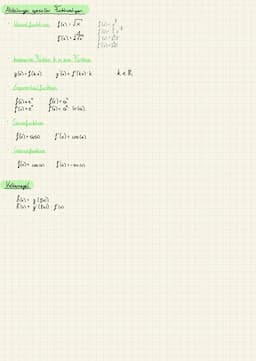 Ableitungen spezieller Funktionstypen
- Wurzelfunktion f(x) = √x
f'(x) = 1/2√x
konstanter Faktor k in einer Funktion
g(x) = f(k·x) g'(x) = f'(k·x) · k k ∈ ℝ
Exponentialfunktion
f(x) = eˣ f(x) = aˣ
f'(x) = eˣ f'(x) = aˣ · ln(a)
- Sinusfunktion
f(x) = sin(x) f'(x) = cos(x)
Cosinusfunktion
f(x) = cos(x) f'(x) = - sin(x)
Kettenregel
h(x) = g(f(x))
h'(x) = g'(f(x)) · f'(x)